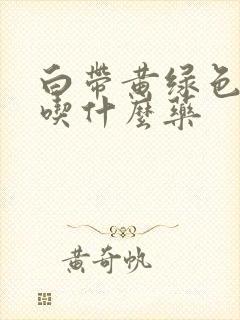 白带黄绿色
喫什麼藥
黄奇帆